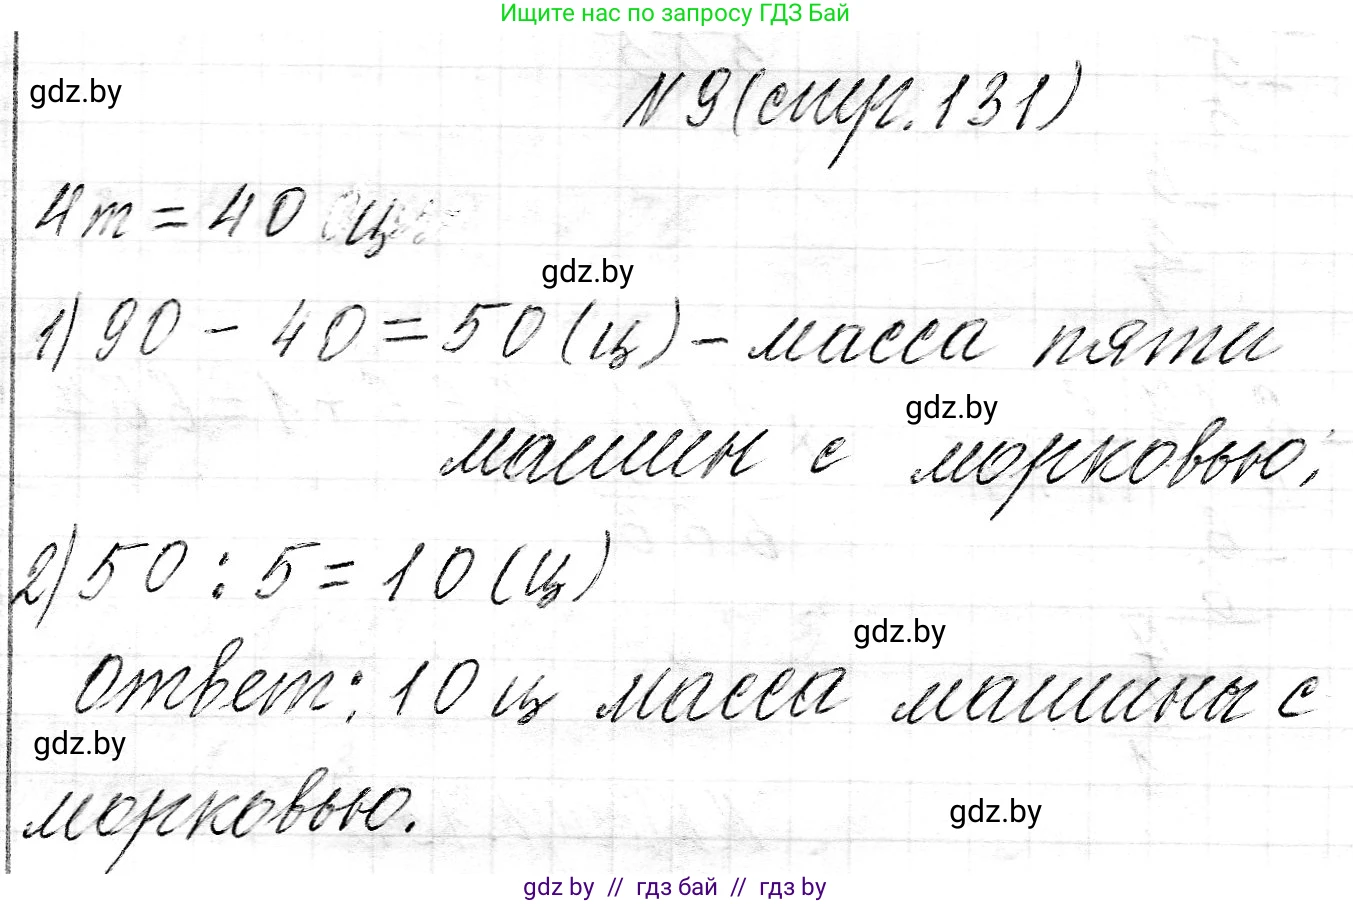 Ищите нас по запросу ГДЗ Бай
gdz.by
N 9 (стр. 131)
4 т = 40 ц
gdz.by
1) 90 - 40 = 50 (ц) - масса пяти
gdz.by
машин с морковью;
2) 50 : 5 = 10 (ц)
gdz.by
Ответ: 10 ц масса машины с
gdz.by
морковью.
gdz.by
gdz by // гдз бай // гдз by